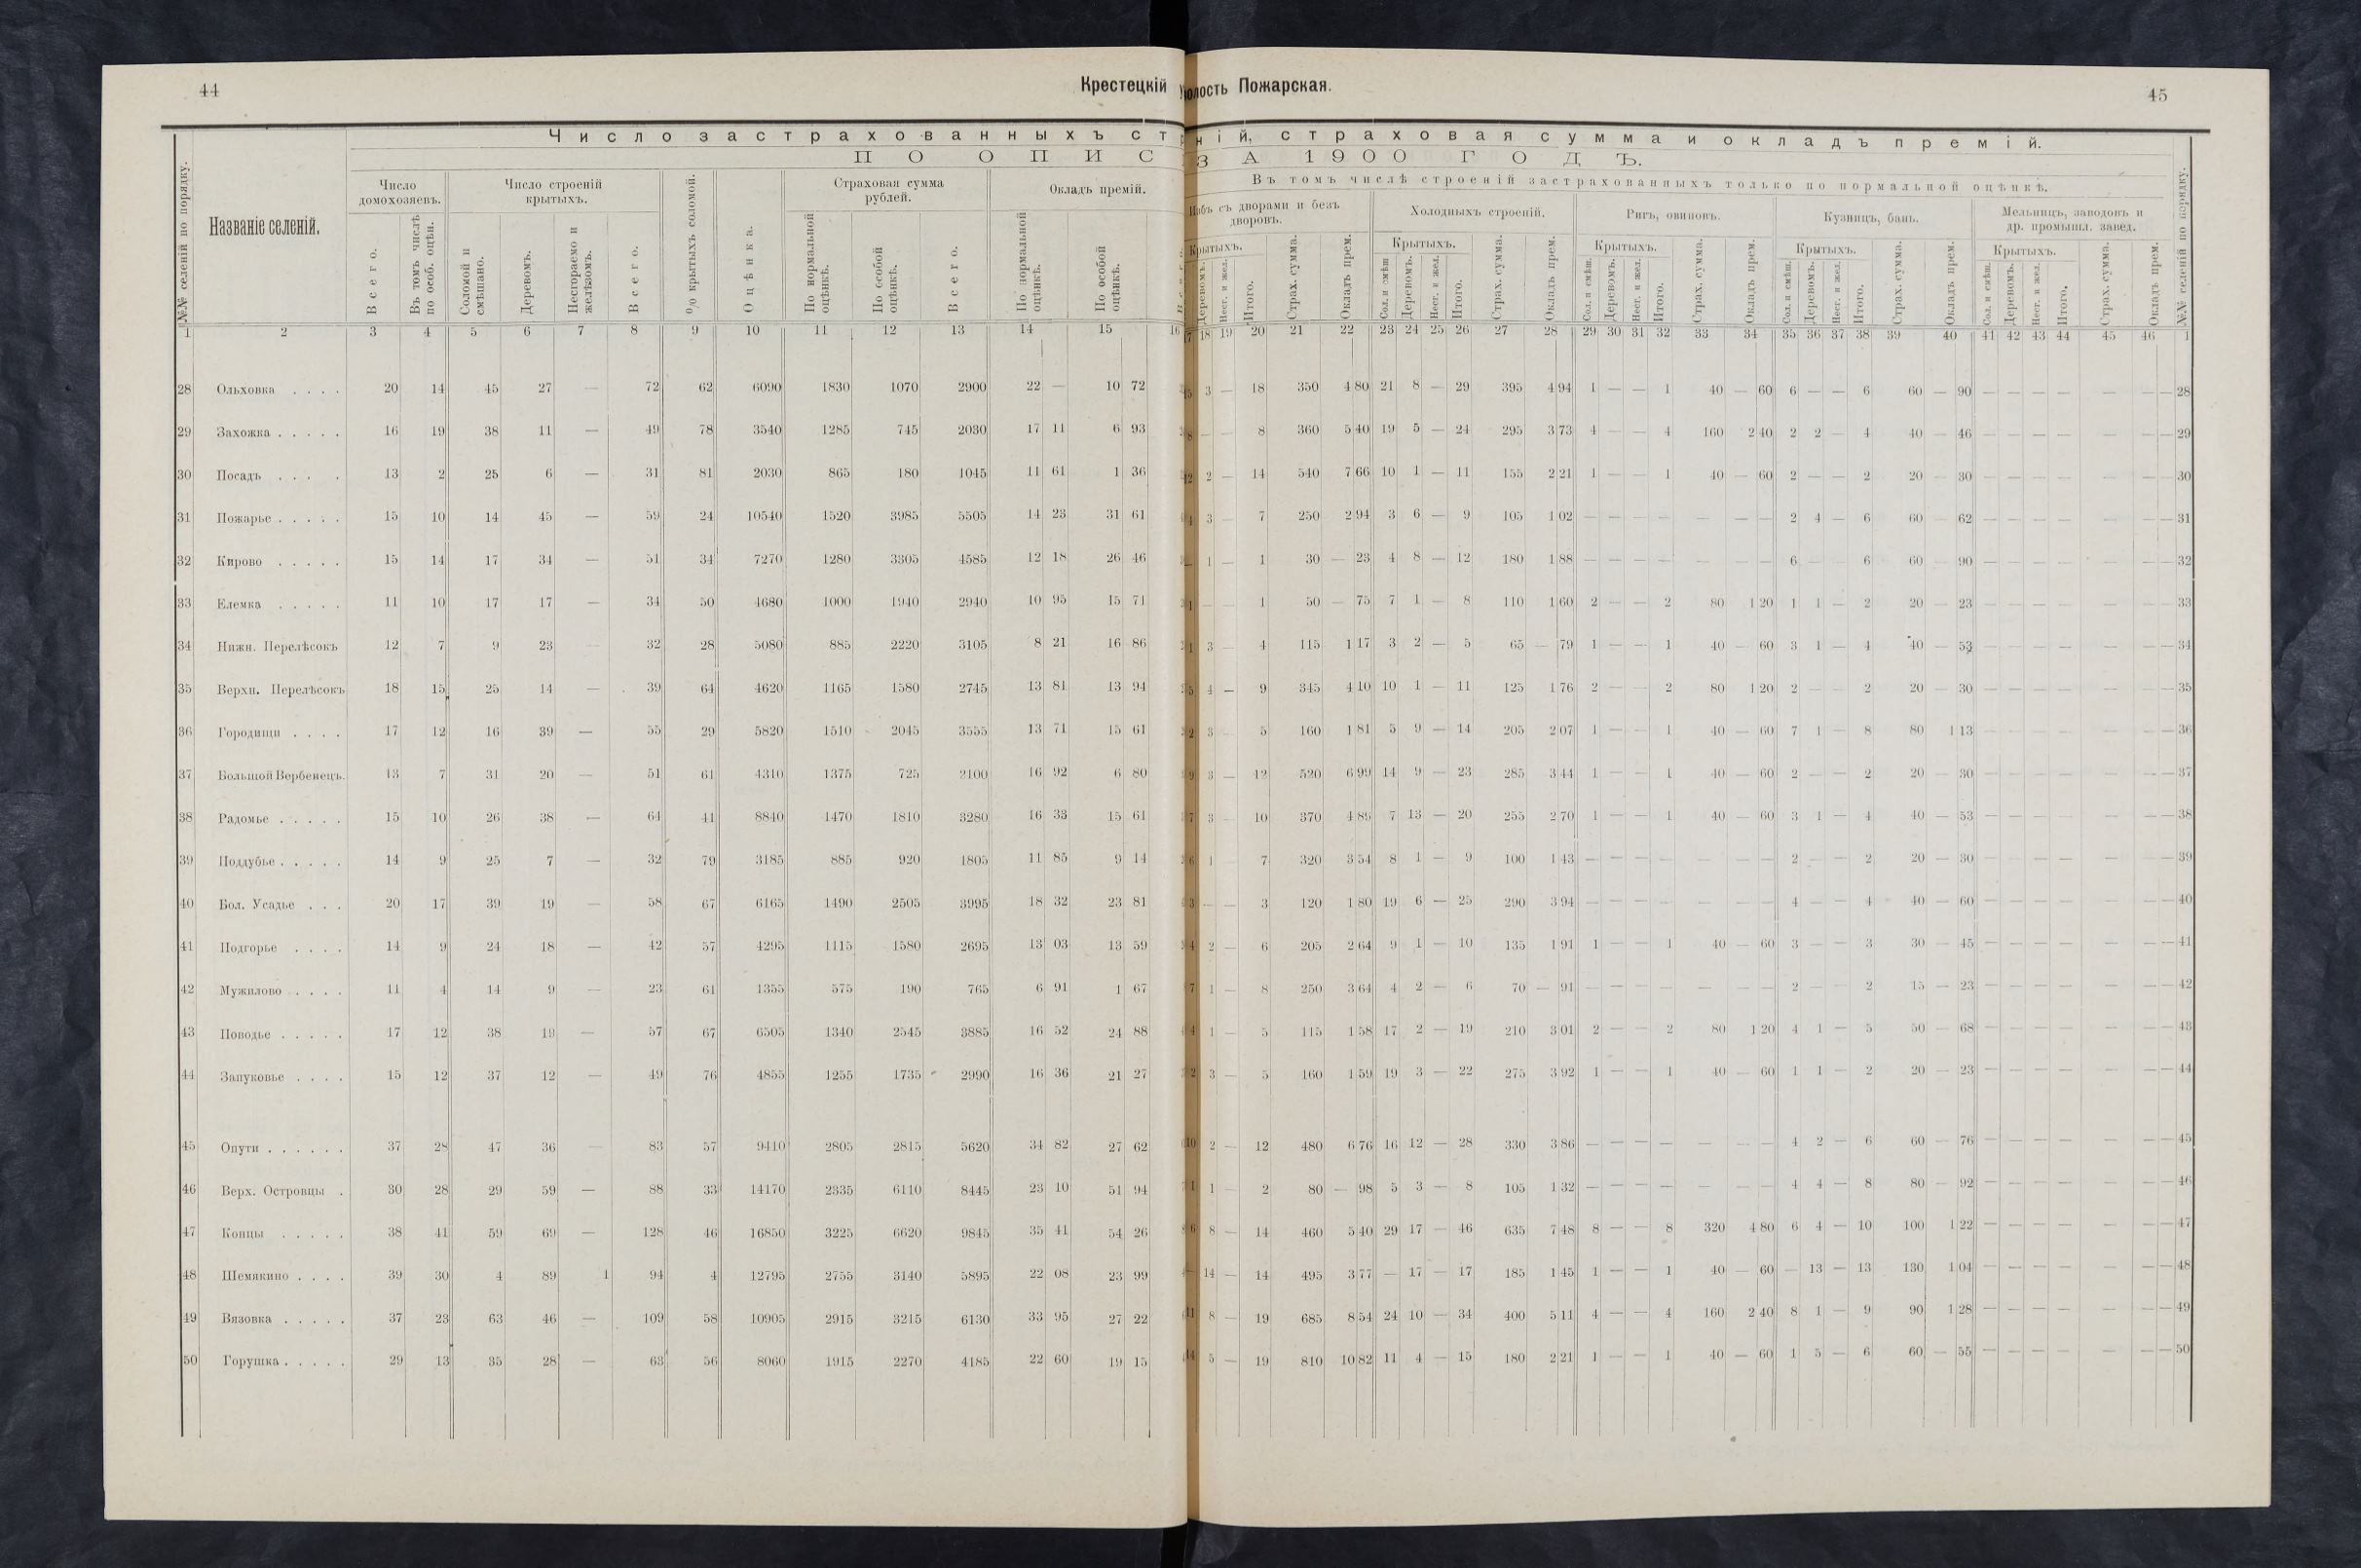 44
Крестецкій
олость Пожарская.
45
Число застрахованныхъ ст
ній, страховая сумма и окладъ премій.
ПО ОПИС
ЗА 1900 ГОДЪ.
№№ селеній по порядку.
Названіе селеній.
Число домохозяевъ.
Всего.
Въ томъ числѣ по особ. оцѣн.
Число строеній крытыхъ.
Соломой и смѣшано.
Деревомъ.
Несгораемо и желѣзомъ.
Всего.
% крытыхъ соломой.
Оцѣнка.
Страховая сумма рублей.
По нормальной оцѣнкѣ.
По особой оцѣнкѣ.
Всего.
Окладъ премій.
По нормальной оцѣнкѣ.
По особой оцѣнкѣ.
Въ томъ числѣ строеній застрахованныхъ только по нормальной оцѣнкѣ.
Избъ съ дворами и безъ дворовъ.
Крытыхъ.
Деревомъ.
Нест. и жел.
Итого.
Страх. сумма.
Окладъ прем.
Холодныхъ строеній.
Крытыхъ.
Сол. и смѣш
Деревомъ.
Нест. и жел.
Итого.
Страх. сумма.
Окладъ прем.
Ригъ, овиновъ.
Крытыхъ.
Сол. и смѣш.
Деревомъ.
Нест. и жел.
Итого.
Страх. сумма.
Окладъ прем.
Кузницъ, бань.
Крытыхъ.
Сол. и смѣш.
Деревомъ.
Нест. и жел.
Итого.
Страх. сумма.
Окладъ прем.
Мельницъ, заводовъ и др. промышл. завед.
Крытыхъ.
Сол. и смѣш.
Деревомъ.
Нест. и жел.
Итого.
Страх. сумма.
Окладъ прем.
№№ селеній по порядку.
1 2 3 4 5 6 7 8 9 10 11 12 13 14 15 16 18 19 20 21 22 23 24 25 26 27 28 29 30 31 32 33 34 35 36 37 38 39 40 41 42 43 44 45 46 1
28 Ольховка . . . . 20 14 45 27 — 72 62 6090 1830 1070 2900 22 — 10 72 3 — 18 350 4 80 21 8 — 29 395 4 94 1 — — 1 40 — 60 6 — — 6 60 — 90 — — — — — — — 28
29 Захожка . . . . . 16 19 38 11 — 49 78 3540 1285 745 2030 17 11 6 93 8 — — 8 360 5 40 19 5 — 24 295 3 73 4 — — 4 160 2 40 2 2 — 4 40 — 46 — — — — — — — 29
30 Посадъ . . . . 13 2 25 6 — 31 81 2030 865 180 1045 11 61 1 36 12 2 — 14 540 7 66 10 1 — 11 155 2 21 1 — — 1 40 — 60 2 — — 2 20 — 30 — — — — — — — 30
31 Пожарье . . . . . 15 10 14 45 — 59 24 10540 1520 3985 5505 14 23 31 61 4 3 — 7 250 2 94 3 6 — 9 105 1 02 — — — — — — — 2 4 — 6 60 — 62 — — — — — — — 31
32 Кирово . . . . . 15 14 17 34 — 51 34 7270 1280 3305 4585 12 18 26 46 — 1 — 1 30 — 23 4 8 — 12 180 1 88 — — — — — — — 6 — — 6 60 — 90 — — — — — — — 32
33 Елемка . . . . . 11 10 17 17 — 34 50 4680 1000 1940 2940 10 95 15 71 1 — — 1 50 — 75 7 1 — 8 110 1 60 2 — — 2 80 1 20 1 1 — 2 20 — 23 — — — — — — — 33
34 Нижн. Перелѣсокъ 12 7 9 23 — 32 28 5080 885 2220 3105 8 21 16 86 1 3 — 4 115 1 17 3 2 — 5 65 — 79 1 — — 1 40 — 60 3 1 — 4 40 — 53 — — — — — — — 34
35 Верхн. Перелѣсокъ 18 15 25 14 — 39 64 4620 1165 1580 2745 13 81 13 94 5 4 — 9 345 4 10 10 1 — 11 125 1 76 2 — — 2 80 1 20 2 — — 2 20 — 30 — — — — — — — 35
36 Городищи . . . . 17 12 16 39 — 55 29 5820 1510 2045 3555 13 71 15 61 2 3 5 160 1 81 5 9 — 14 205 2 07 1 — — 1 40 — 60 7 1 — 8 80 1 13 — — — — — — — 36
37 Большой Вербенецъ. 13 7 31 20 — 51 61 4310 1375 725 2100 16 92 6 80 9 3 — 12 520 6 99 14 9 — 23 285 3 44 1 — — 1 40 — 60 2 — — 2 20 — 30 — — — — — — — 37
38 Радомье . . . . . 15 10 26 38 — 64 41 8840 1470 1810 3280 16 33 15 61 7 3 — 10 370 4 89 7 13 — 20 255 2 70 1 — — 1 40 — 60 3 1 — 4 40 — 53 — — — — — — — 38
39 Поддубье . . . . . 14 9 25 7 — 32 79 3185 885 920 1805 11 85 9 14 6 1 7 320 3 54 8 1 — 9 100 1 43 — — — — — — — 2 — — 2 20 — 30 — — — — — — — 39
40 Бол. Усадье . . . 20 17 39 19 — 58 67 6165 1490 2505 3995 18 32 23 81 3 — — 3 120 1 80 19 6 — 25 290 3 94 — — — — — — — 4 — — 4 40 — 60 — — — — — — — 40
41 Подгорье . . . . 14 9 24 18 — 42 57 4295 1115 1580 2695 13 03 13 59 4 2 — 6 205 2 64 9 1 — 10 135 1 91 1 — — 1 40 — 60 3 — — 3 30 — 45 — — — — — — — 41
42 Мужилово . . . . 11 4 14 9 — 23 61 1355 575 190 765 6 91 1 67 7 1 — 8 250 3 64 4 2 — 6 70 — 91 — — — — — — — 2 — — 2 15 — 23 — — — — — — — 42
43 Поводье . . . . . 17 12 38 19 — 57 67 6505 1340 2545 3885 16 52 24 88 4 1 — 5 115 1 58 17 2 — 19 210 3 01 2 — — 2 80 1 20 4 1 — 5 50 — 68 — — — — — — — 43
44 Запуковье . . . . 15 12 37 12 — 49 76 4855 1255 1735 2990 16 36 21 27 2 3 — 5 160 1 59 19 3 — 22 275 3 92 1 — — 1 40 — 60 1 1 — 2 20 — 23 — — — — — — — 44
45 Опути . . . . . . 37 28 47 36 — 83 57 9410 2805 2815 5620 34 82 27 62 10 2 — 12 480 6 76 16 12 — 28 330 3 86 — — — — — — — 4 2 — 6 60 — 76 — — — — — — — 45
46 Верх. Островцы . 30 28 29 59 — 88 33 14170 2335 6110 8445 23 10 51 94 1 1 — 2 80 — 98 5 3 — 8 105 1 32 — — — — — — — 4 4 — 8 80 — 92 — — — — — — — 46
47 Концы . . . . . 38 41 59 69 — 128 46 16850 3225 6620 9845 35 41 54 26 6 8 — 14 460 5 40 29 17 — 46 635 7 48 8 — — 8 320 4 80 6 4 — 10 100 1 22 — — — — — — — 47
48 Шемякино . . . . 39 30 4 89 1 94 4 12795 2755 3140 5895 22 08 23 99 — 14 — 14 495 3 77 — 17 — 17 185 1 45 1 — — 1 40 — 60 — 13 — 13 130 1 04 — — — — — — — 48
49 Вязовка . . . . . 37 23 63 46 — 109 58 10905 2915 3215 6130 33 95 27 22 11 8 — 19 685 8 54 24 10 — 34 400 5 11 4 — — 4 160 2 40 8 1 — 9 90 1 28 — — — — — — — 49
50 Горушка . . . . . 29 13 35 28 — 63 56 8060 1915 2270 4185 22 60 19 15 14 5 — 19 810 10 82 11 4 — 15 180 2 21 1 — — 1 40 — 60 1 5 — 6 60 — 55 — — — — — — — 50